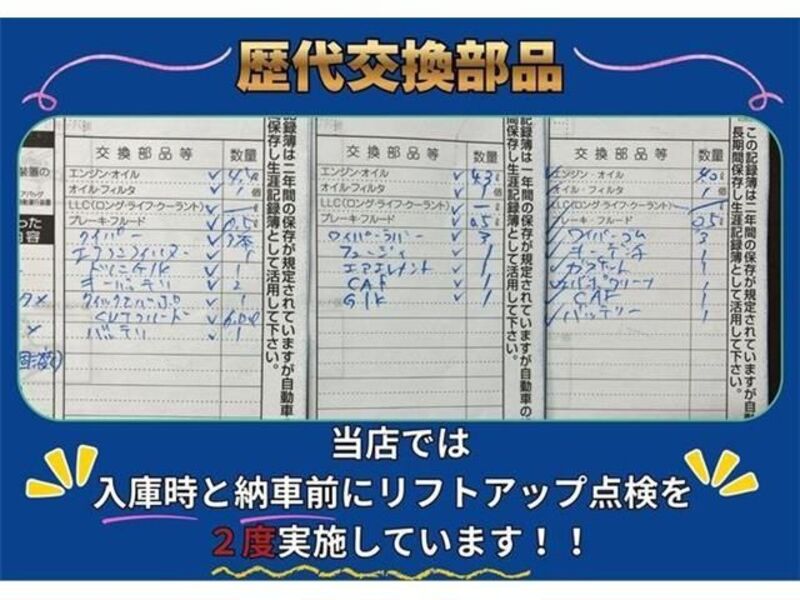 歴代交換部品
装置の
った
内容
交換部品等 数量
エンジン・オイル
オイル・フィルタ 1 個
LLC(ロング・ライフ・クーラント)
ブレーキ・フルード 0.5
ワイパー 3本
バッテリ 1
記録簿は二年間の保存が規定されていますが自動車
保存し生涯記録簿として活用して下さい。
交換部品等 数量
エンジン・オイル 4.3
オイル・フィルタ 1 個
LLC(ロング・ライフ・クーラント)
ブレーキ・フルード 0.5
ワイパーラバー 3
エアエレメント 1
CAF 1
記録簿は一年間の保存が規定されていますが自動車の
間保存し生涯記録簿として活用して下さい。
交換部品等 数量
エンジン・オイル 4.0
オイル・フィルタ 1
LLC(ロング・ライフ・クーラント)
ブレーキ・フルード 0.5
ワイパーゴム 3
ガスケット 1
CAF 1
バッテリー 1
この記録簿は二年間の保存が規定されていますが自動車
長期間保存し生涯記録簿として活用して下さい。
当店では
入庫時と納車前にリフトアップ点検を
2度実施しています！！